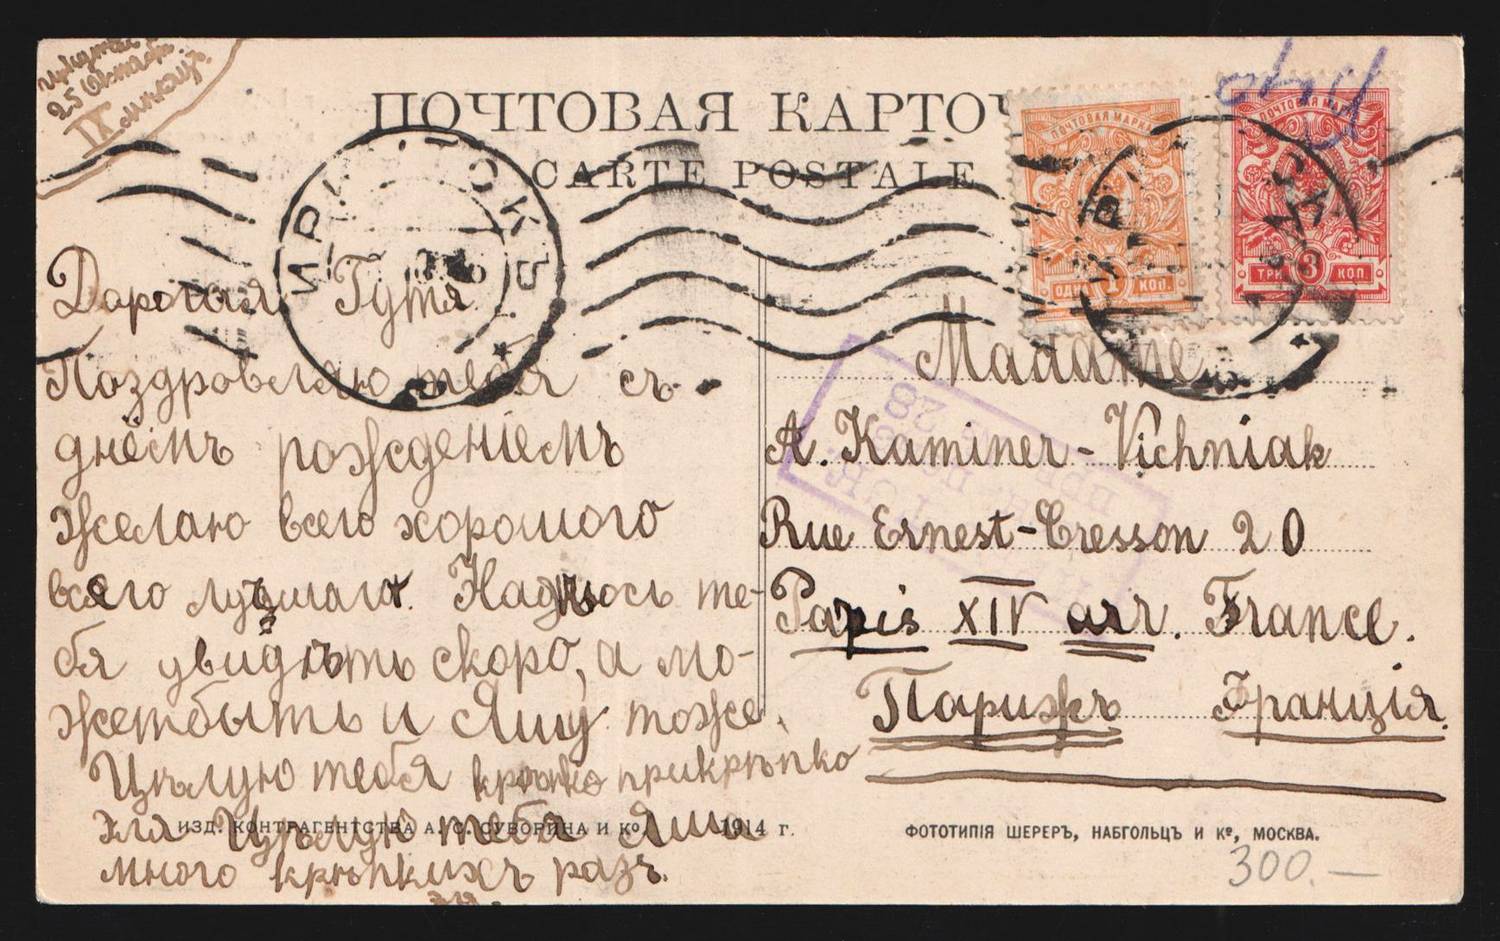 25 Октяб.
IX
ПОЧТОВАЯ КАРТОЧ
CARTE POSTALE
ИРК ТСКЪ
ПОЧТОВАЯ МАРКА
ОДНА 1 КОП.
ПОЧТОВАЯ МАРКА
ТРИ 3 КОП.
Дорогая Гутя
Поздровляю тебя съ
днёмъ рожденіемъ
желаю всего хорошого
всего лучшаго. Надѣюсь те-
бя увидѣть скоро, а мо-
жетбыть и Яшу тоже.
Цѣлую тебя крѣпко прикрѣпко
Эля Цѣлую тебя Яша
много крѣпкихъ разъ.
Madame
A. Kaminer-Vichniak
Rue Ernest-Cresson 20
Paris XIV arr. France.
Парижъ Франція.
28
ИЗД. КОНТРАГЕНТСТВА А. С. СУВОРИНА И Ко 1914 г.
ФОТОТИПІЯ ШЕРЕРЪ, НАБГОЛЬЦЪ И Ко, МОСКВА.
300.—